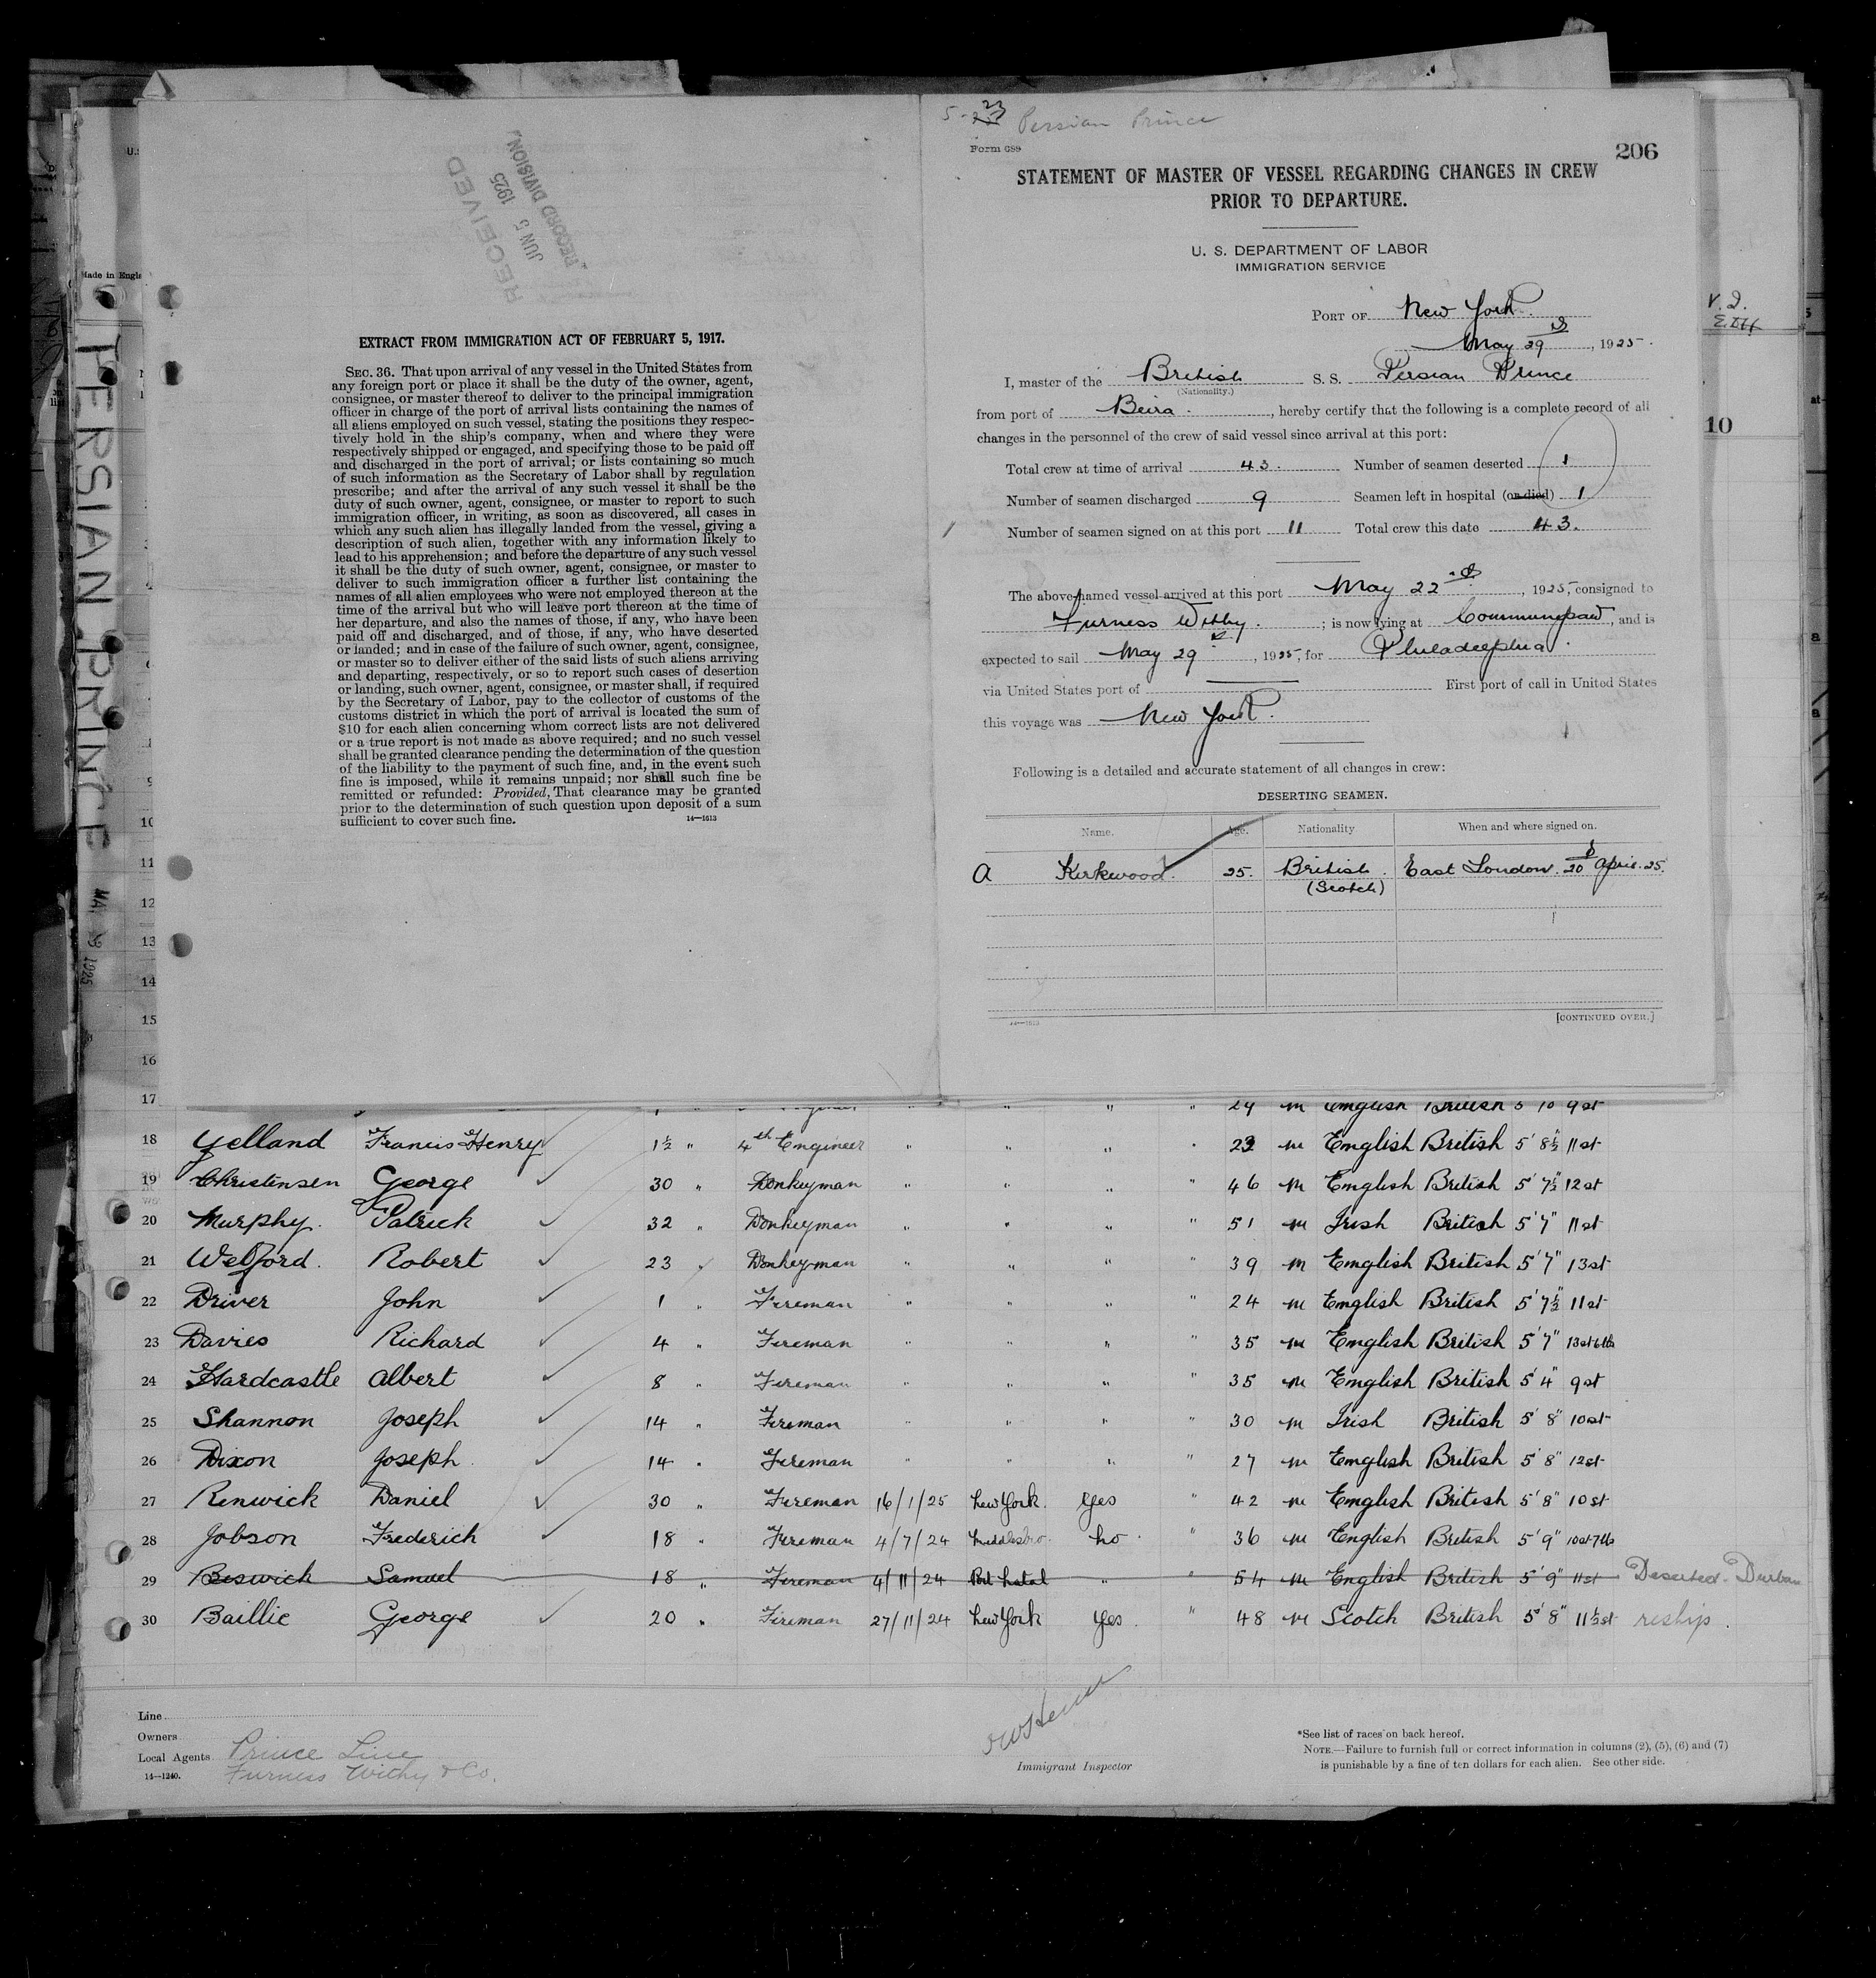 RECEIVED
JUN 5 1925
RECORD DIVISION
EXTRACT FROM IMMIGRATION ACT OF FEBRUARY 5, 1917.
SEC. 36. That upon arrival of any vessel in the United States from
any foreign port or place it shall be the duty of the owner, agent,
consignee, or master thereof to deliver to the principal immigration
officer in charge of the port of arrival lists containing the names of
all aliens employed on such vessel, stating the positions they respec-
tively hold in the ship's company, when and where they were
respectively shipped or engaged, and specifying those to be paid off
and discharged in the port of arrival; or lists containing so much
of such information as the Secretary of Labor shall by regulation
prescribe; and after the arrival of any such vessel it shall be the
duty of such owner, agent, consignee, or master to report to such
immigration officer, in writing, as soon as discovered, all cases in
which any such alien has illegally landed from the vessel, giving a
description of such alien, together with any information likely to
lead to his apprehension; and before the departure of any such vessel
it shall be the duty of such owner, agent, consignee, or master to
deliver to such immigration officer a further list containing the
names of all alien employees who were not employed thereon at the
time of the arrival but who will leave port thereon at the time of
her departure, and also the names of those, if any, who have been
paid off and discharged, and of those, if any, who have deserted
or landed; and in case of the failure of such owner, agent, consignee,
or master so to deliver either of the said lists of such aliens arriving
and departing, respectively, or so to report such cases of desertion
or landing, such owner, agent, consignee, or master shall, if required
by the Secretary of Labor, pay to the collector of customs of the
customs district in which the port of arrival is located the sum of
$10 for each alien concerning whom correct lists are not delivered
or a true report is not made as above required; and no such vessel
shall be granted clearance pending the determination of the question
of the liability to the payment of such fine, and, in the event such
fine is imposed, while it remains unpaid; nor shall such fine be
remitted or refunded: Provided, That clearance may be granted
prior to the determination of such question upon deposit of a sum
sufficient to cover such fine. 14—1613
5-23 Persian Prince
Form 689
206
STATEMENT OF MASTER OF VESSEL REGARDING CHANGES IN CREW
PRIOR TO DEPARTURE.
U. S. DEPARTMENT OF LABOR
IMMIGRATION SERVICE
PORT OF New York.
May 29, 1925.
I, master of the British S. S. Persian Prince
(Nationality.)
from port of Beira., hereby certify that the following is a complete record of all
changes in the personnel of the crew of said vessel since arrival at this port:
Total crew at time of arrival 43. Number of seamen deserted 1
Number of seamen discharged 9 Seamen left in hospital (or died) 1
Number of seamen signed on at this port 11 Total crew this date 43.
The above-named vessel arrived at this port May 22nd, 1925, consigned to
Furness Withy.; is now lying at Communipaw, and is
expected to sail May 29, 1925, for Philadelphia.
via United States port of First port of call in United States
this voyage was New York.
Following is a detailed and accurate statement of all changes in crew:
DESERTING SEAMEN.
Name. Age. Nationality When and where signed on.
A Kirkwood. 25. British East London. 20 April. 25.
(Scotch)
14—1613 [CONTINUED OVER.]
Made in Engla
PERSIAN PRINCE
1925
10
10
11
12
13
14
15
16
17 29 m English British 5 10 9st
18 Yelland Francis Henry 1½ " 4th Engineer " " " " 23 m English British 5' 8½ 11st
19 Christensen George 30 " Donkeyman " " " " 46 m English British 5' 7½ 12st
20 Murphy. Patrick 32 " Donkeyman " " " " 51 m Irish British 5' 7" 11st
21 Welford. Robert 23 " Donkeyman " " " " 39 m English British 5' 7" 13st
22 Driver John 1 " Fireman " " " " 24 m English British 5' 7½" 11st
23 Davies Richard 4 " Fireman " " " " 35 m English British 5' 7" 13st 6lb
24 Hardcastle Albert 8 " Fireman " " " " 35 m English British 5' 4" 9st
25 Shannon Joseph 14 " Fireman " " " " 30 m Irish British 5' 8" 10st
26 Dixon Joseph 14 " Fireman " " " " 27 m English British 5' 8" 12st
27 Renwick Daniel 30 " Fireman 16/1/25 New York. Yes " 42 m English British 5' 8" 10st
28 Jobson Frederich 18 " Fireman 4/7/24 Middlesbro. No " 36 m English British 5' 9" 10st 7lb
29 Beswick Samuel 18 " Fireman 4/11/24 Port Natal " " 54 m English British 5' 9" 11st Deserted-Durban
30 Baillie George 20 " Fireman 27/11/24 New York Yes. " 48 m Scotch British 5' 8" 11½st reship.
Line
Owners
Local Agents Prince Line
Furness Withy & Co.
14—1240.
Immigrant Inspector
*See list of races on back hereof.
NOTE.—Failure to furnish full or correct information in columns (2), (5), (6) and (7)
is punishable by a fine of ten dollars for each alien. See other side.